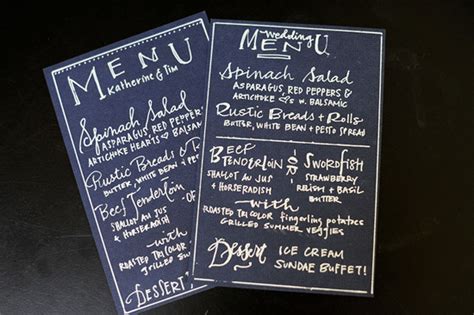 MENU
Katherine & Tim
Spinach Salad
ASPARAGUS, RED PEPPERS
ARTICHOKE HEARTS BALSAMIC
Rustic Breads &
BUTTER, WHITE BEAN +
Beef Tenderloin
SHALLOT AU JUS
+ HORSERADISH
with
ROASTED TRICOLOR
GRILLED
DESSERT
wedding
MENU
Spinach Salad
ASPARAGUS, RED PEPPERS &
ARTICHOKE ♡'s w. BALSAMIC
Rustic Breads + Rolls
BUTTER, WHITE BEAN + PESTO SPREAD
BEEF TENDERLOIN
SHALLOT AU JUS
+ HORSERADISH
OR
SWORDFISH
STRAWBERRY
RELISH + BASIL
BUTTER
with
ROASTED TRICOLOR fingerling potatoes
GRILLED SUMMER VEGGIES
Dessert ICE CREAM
SUNDAE BUFFET!